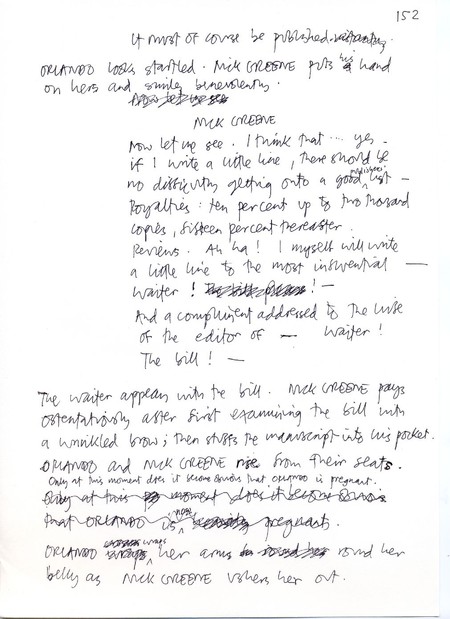 152
It must of course be published instantly.
ORLANDO looks startled. NICK GREENE puts his hand
on hers and smiles benevolently.
NICK GREENE
Now let me see. I think that ... yes -
if I write a little line, there should be
no difficulty getting onto a good publisher's list —
Royalties: ten percent up to two thousand
copies, fifteen percent thereafter.
Reviews. Ah ha! I myself will write
a little line to the most influential —
Waiter! ! —
And a compliment addressed to the wife
of the editor of — Waiter!
The bill! —
The waiter appears with the bill. NICK GREENE pays
ostentatiously after first examining the bill with
a wrinkled brow; then stuffs the manuscript into his pocket.
ORLANDO and NICK GREENE rise from their seats.
Only at this moment does it become obvious that ORLANDO is pregnant.
Only at this moment does it become obvious
that ORLANDO is now pregnant.
ORLANDO wraps her arms round her
belly as NICK GREENE ushers her out.